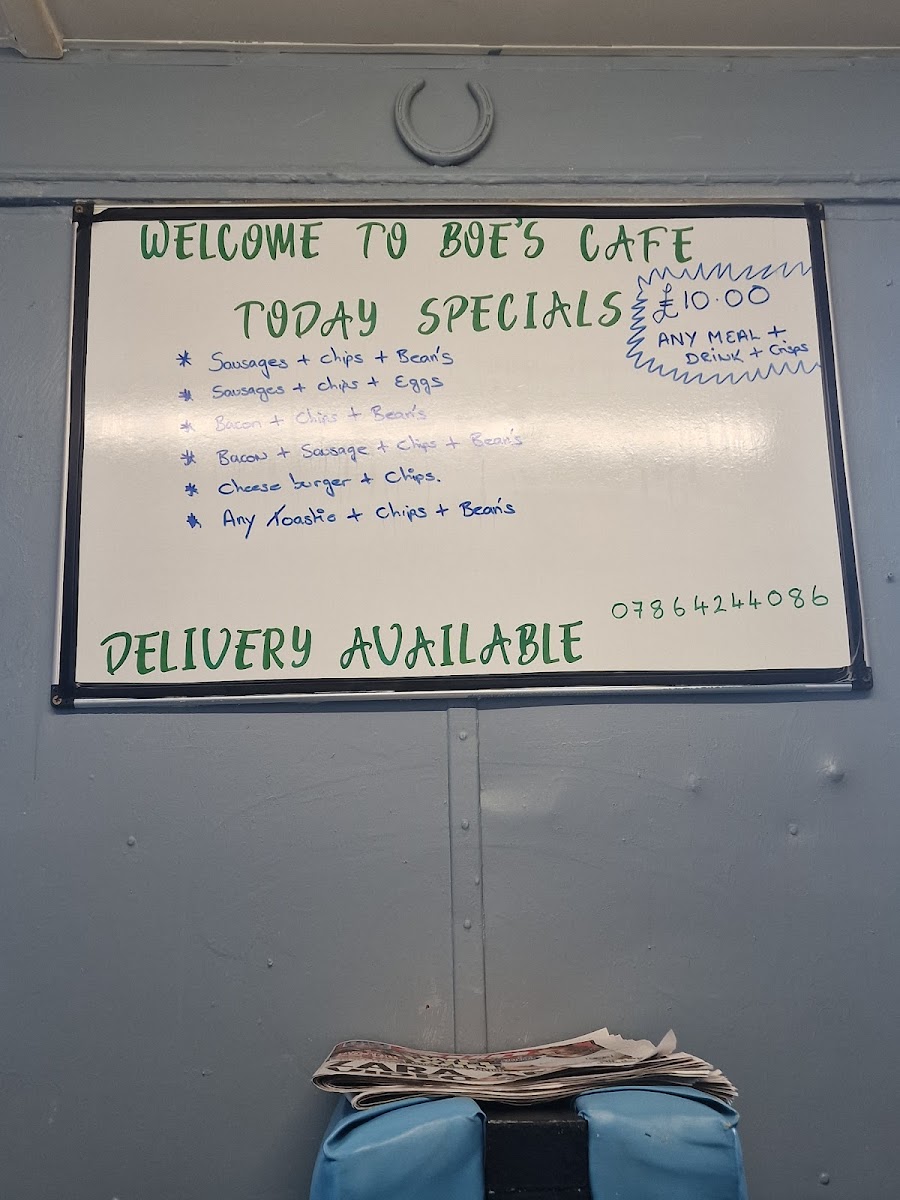 WELCOME TO BOE'S CAFE
TODAY SPECIALS
£10.00
ANY MEAL +
DRINK + Crisps
* Sausages + chips + Bean's
* Sausages + chips + Eggs
* Bacon + Chips + Bean's
* Bacon + Sausage + Chips + Bean's
* Cheese burger + Chips.
* Any Toastie + Chips + Bean's
07864244086
DELIVERY AVAILABLE
KARA